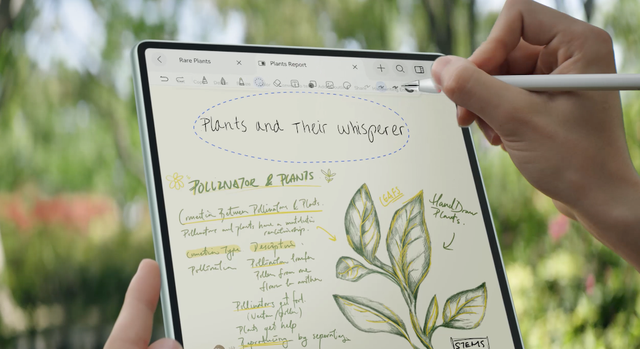 Rare Plants
Plants Report
Plants and Their Whisperer
POLLINATOR & PLANTS
Connection Between Pollinators & Plants.
Pollinators and plants have a
relationship.
Connection Type Description
Pollination Pollinators transfer
Pollen from one
flower to another
Pollinators get food
(Nectar/Pollen)
Plants get help
Reproducing by separating
LEAFS
Hand Drawn
Plants.
STEMS